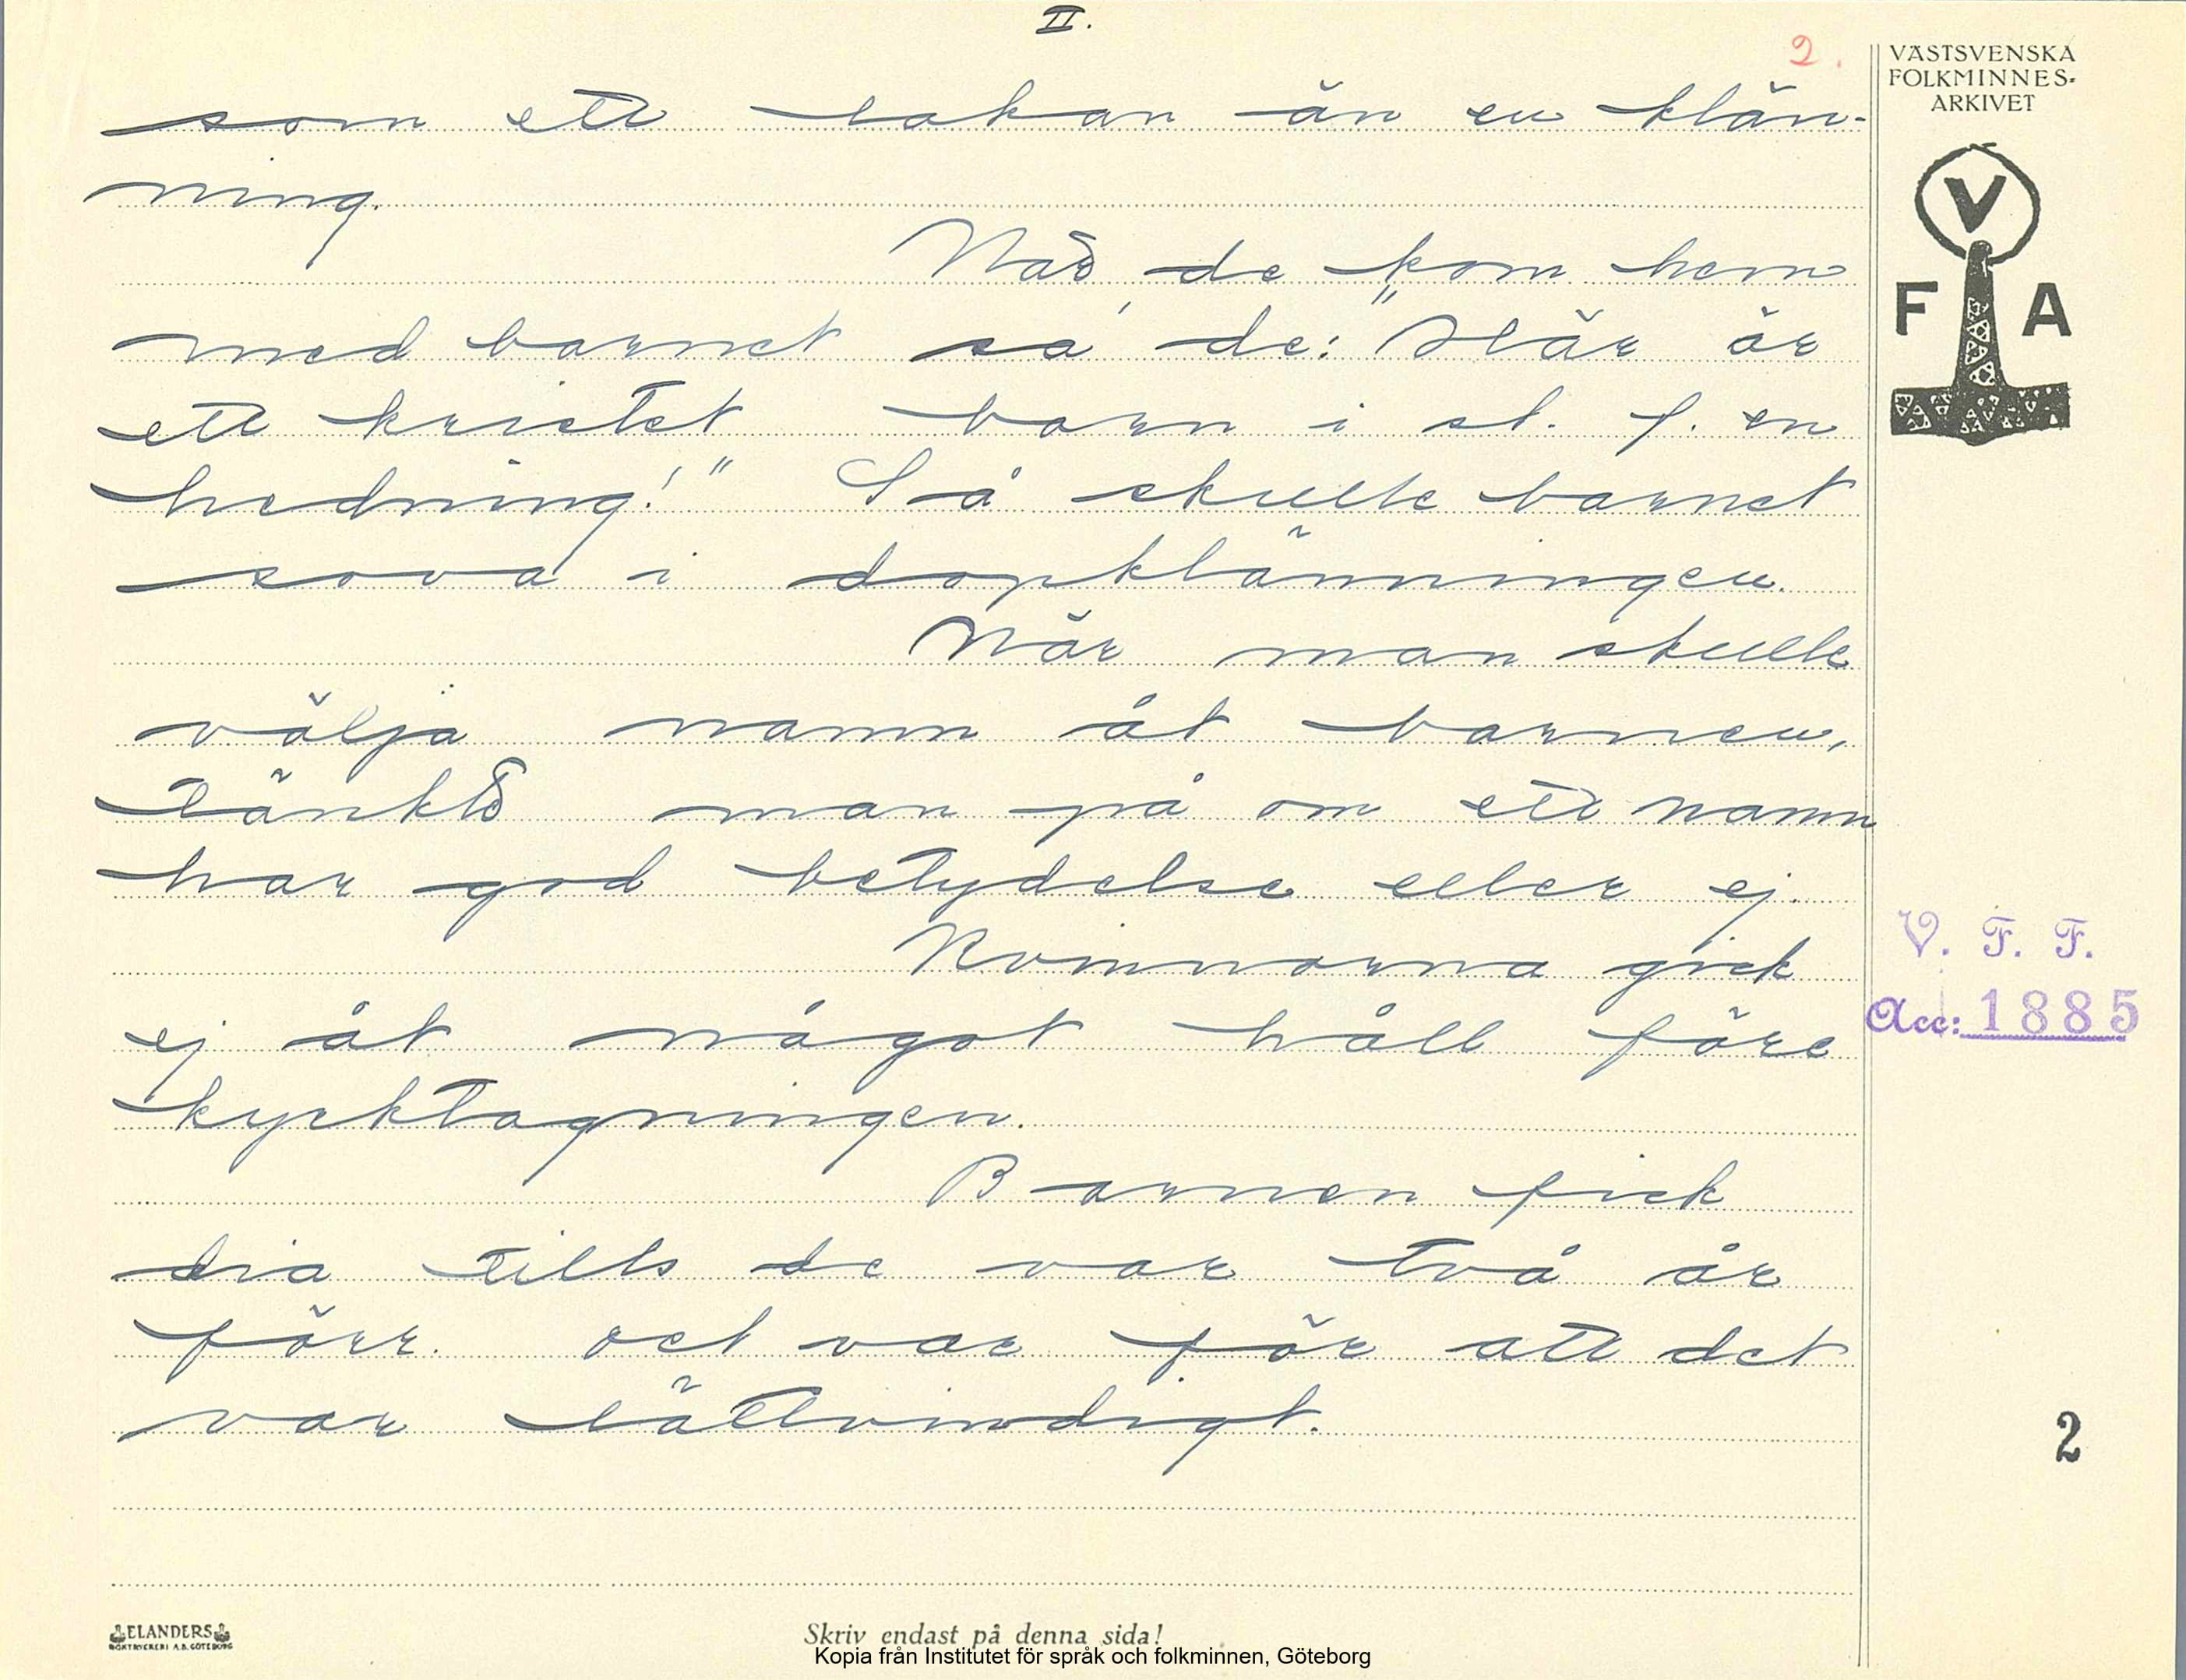 II.
2.
VÄSTSVENSKA
FOLKMINNES-
ARKIVET
V
F A
som ett lakan än en klän-
ning.
När de kom hem
med barnet sa' de: "Här är
ett kristet barn i st. f. en
hedning!" Så skulle barnet
sova i dopklänningen.
När man skulle
välja namn åt barnen,
tänkte man på om ett namn
har god betydelse eller ej.
Kvinnorna gick
ej åt något håll före
kyrktagningen.
Barnen fick
dia tills de var två år
förr. Det var för att det
var lättvindigt.
V. F. F.
Acc: 1885
2
ELANDERS
BOKTRYCKERI A.B. GÖTEBORG
Skriv endast på denna sida!
Kopia från Institutet för språk och folkminnen, Göteborg